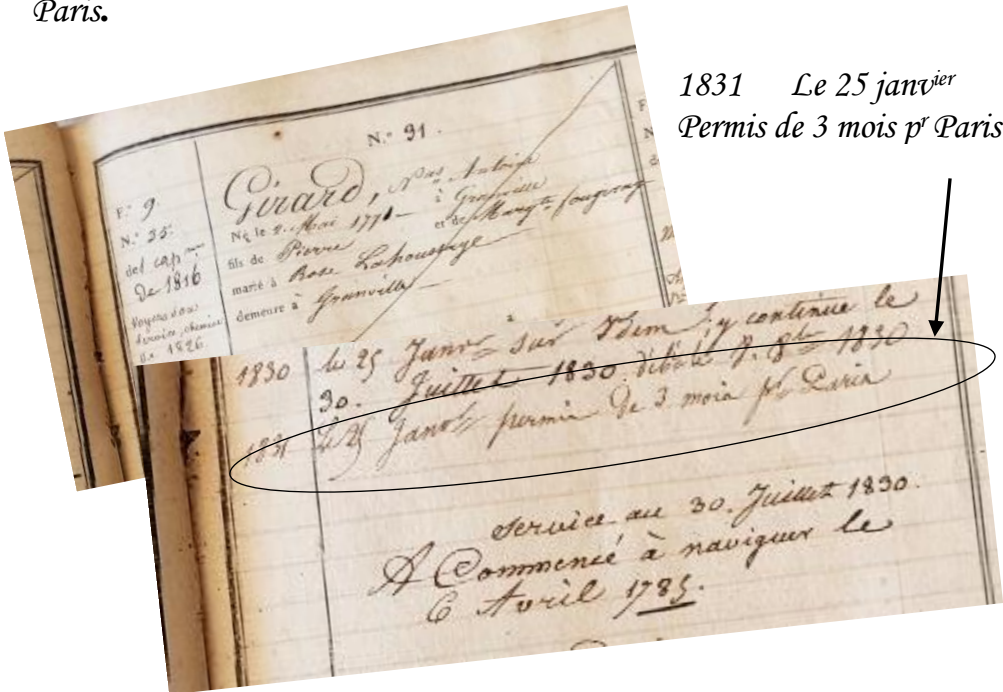 Paris.
1831 Le 25 janvier
Permis de 3 mois pr Paris
N.° 91.
F.° 9
N.° 35.
del cap
De 1816
Voyez son
service, chemise
de 1826
Girard, Nas Antoine
Né le 2. Mai 1771 à Granville
fils de Pierre et de Margte
marié à Rose Lahoussaye
demeure à Granville
1830 le 25 Janvr sur Idem, y continue le
30. Juillet 1830 débqué P. 8bre 1830
1831 Le 25 Janvr permis de 3 mois pr Paris
Service au 30. Juillet 1830.
A Commencé à naviguer le
6 Avril 1785.